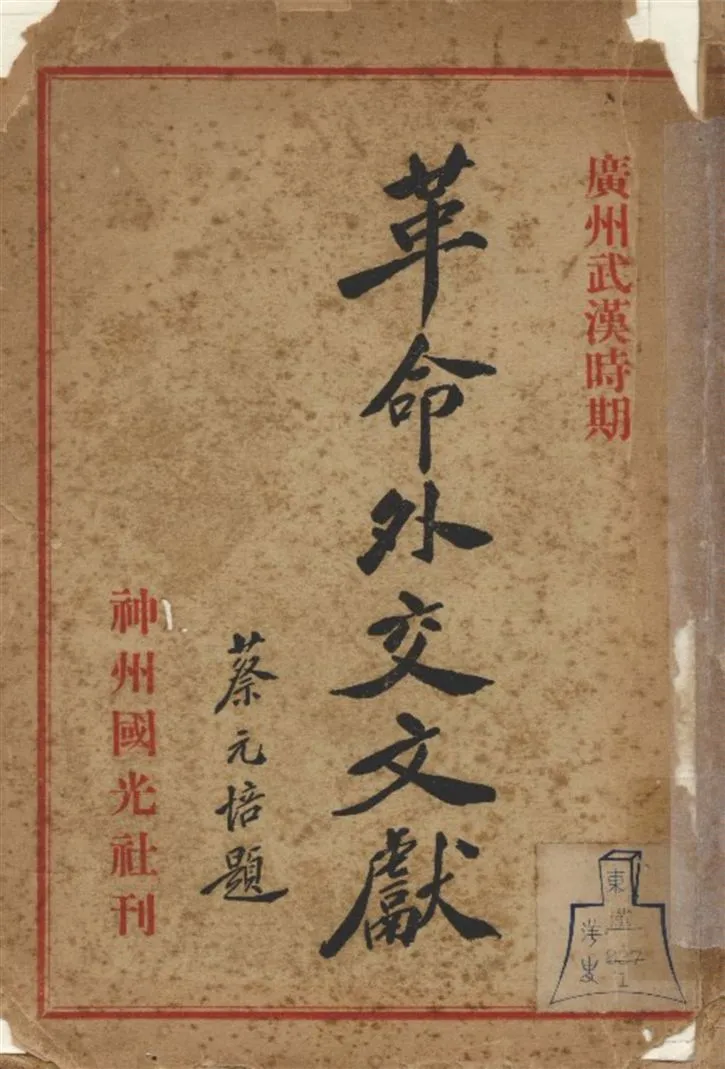 廣州武漢時期
革命外交文獻
蔡元培題
神州國光社刊
東
洋史
1